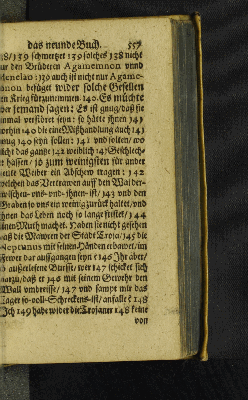 das neunde Buch. 357
18/139 schmertzet 139 solches 138 nicht
nur den Brüdern Agamemnon vnnd
Menelao: 139 auch ist nicht nur Agame-
mnon befüget wider solche Gesellen
den Krieg fürzunemmen. 140. Es möchte
aber jemand sagen: Es ist gnug/daß sie
einmal verstöret seyn: so hätte ihnen 141
vorhin 140 die eine Mißhandlung auch 141
gnug 140 seyn sollen: 141 vnd solten/wo
nicht das gantze 142 weiblich 147 Geschlech-
te hassen/so zum wenigsten für ander
Leute Weiber ein Abschew tragen: 142
welchen das Vertrawen auff den Wal der-
zwischen-vns-vnd-ihnen-ist/143 vnd den
Graben so vns ein wenig zurück haltet/vnd
ihnen das Leben noch so lange fristet/144
einen Muth machet. Haben sie nicht gesehen
daß die Mawren der Stadt Troja/145 die
Neptunus mit seinen Händen erbawet/im
Fewer dar auffgangen seyn: 146 Ihr aber/
O außerlesene Bursse/wer 147 schicket sich
darzu/daß er 146 mit seinem Gewehr den
Wall vmbreisse/147 vnd sampt mir das
Lager so-voll-Schreckens-ist/anfalle: 148
Ich 149 habe wider die Trojaner 148 keine
von